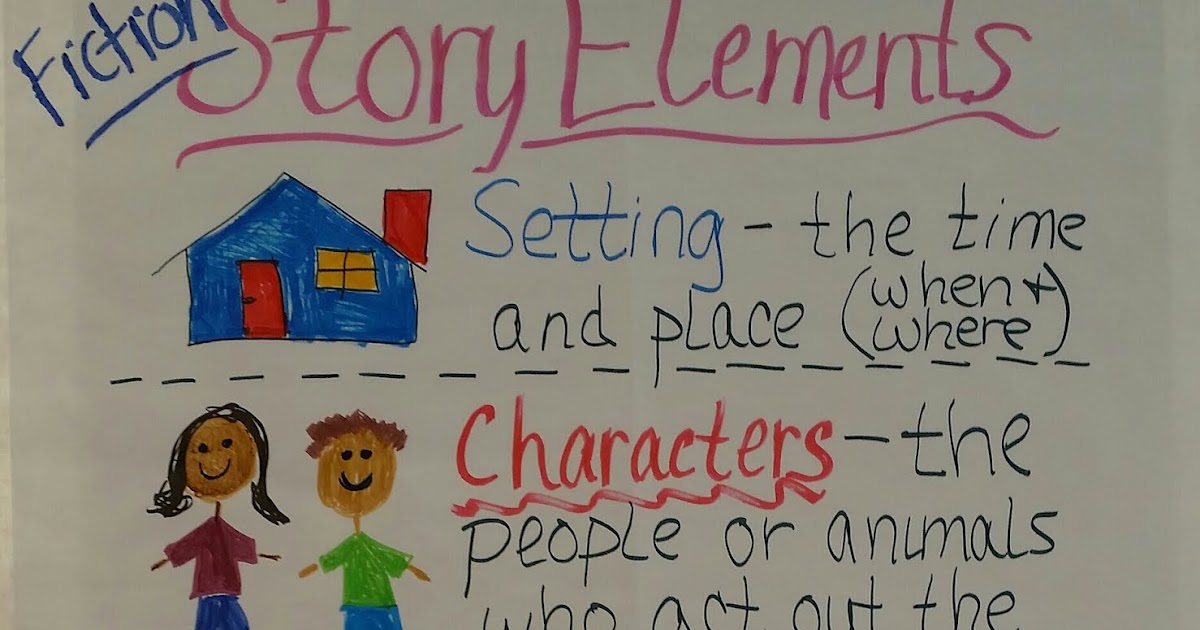 Fiction
Story Elements
Setting - the time
and place (when +
where)
Characters - the
people or animals
who act out the